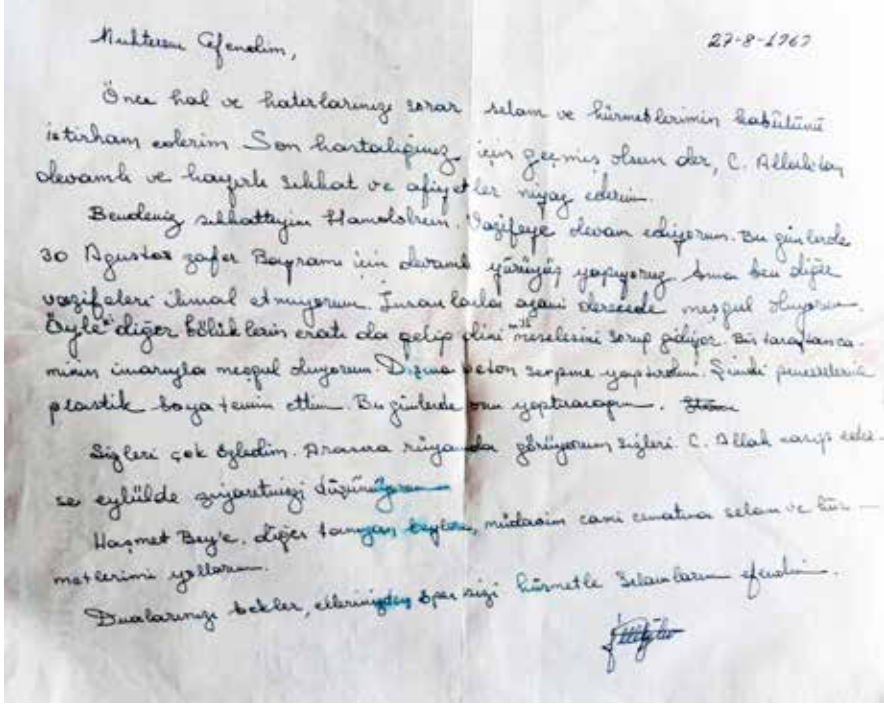 Muhterem Efendim,
27-8-1967
Önce hal ve hatırlarınızı sorar selam ve hürmetlerimin kabûlünü
istirham ederim. Son hastalığınız için geçmiş olsun der, C. Allah'tan
devamlı ve hayırlı sıhhat ve afiyetler niyaz ederim.
Bendeniz sıhhatteyim Hamdolsun. Vazifeye devam ediyorum. Bu günlerde
30 Ağustos zafer Bayramı için devamlı yürüyüş yapıyoruz. Ama ben diğer
vazifeleri ihmal etmiyorum. İnsanlarla azami derecede meşgul oluyorum.
Öyle ki diğer bölüklerin eratı da gelip dini meselesini sorup gidiyor. Bir taraftan ca-
minin imarıyla meşgul oluyorum. Dışına beton serpme yaptırdım. Şimdi pencerelerine
plastik boya temin ettim. Bu günlerde onu yaptıracağım.
Sizleri çok özledim. Arasıra rüyamda görüyorum sizleri. C. Allah nasip eder-
se eylülde ziyaretinizi düşünüyorum
Haşmet Bey'e, diğer tanıyan beylere, müdavim cami cematına selam ve hür-
metlerimi yollarım.
Dualarınızı bekler, ellerinizden öper sizi hürmetle selamlarım efendim.